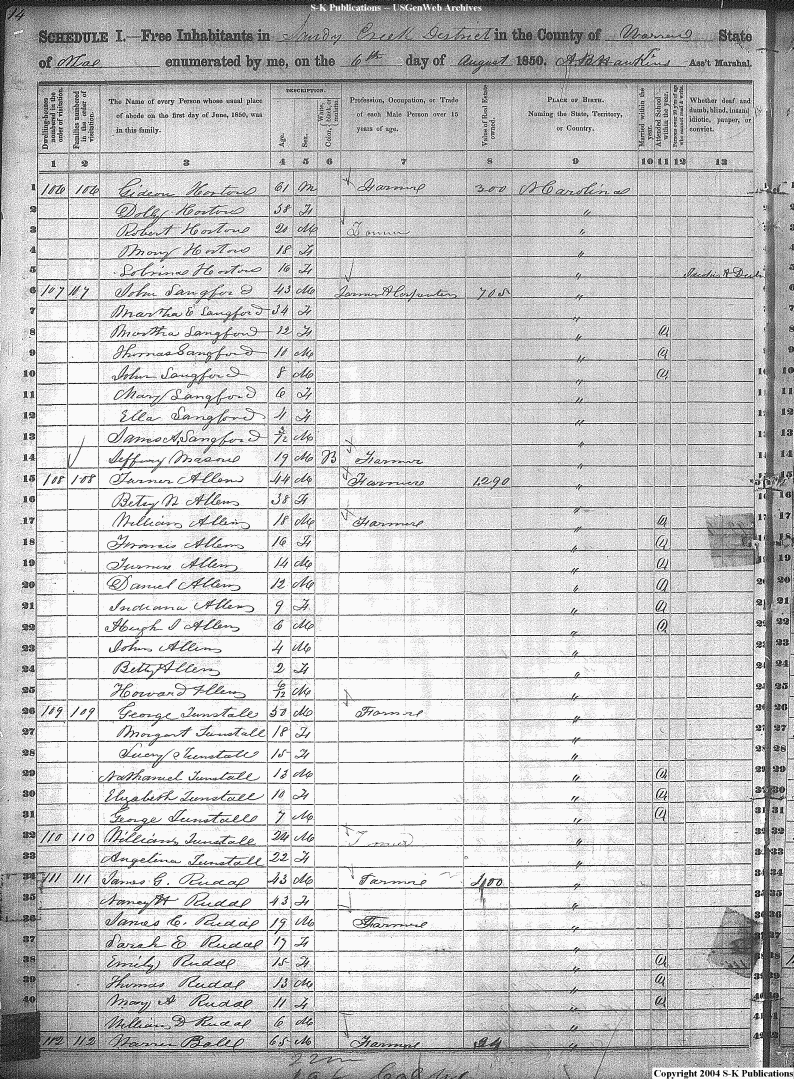 S-K Publications – USGenWeb Archives
14
SCHEDULE I.—Free Inhabitants in Sandy Creek District in the County of Warren State
of enumerated by me, on the 6th day of August 1850. A B Hawkins Ass't Marshal.
Dwelling-houses numbered in the order of visitation.
Families numbered in the order of visitation.
The Name of every Person whose usual place of abode on the first day of June, 1850, was in this family.
DESCRIPTION.
Age.
Sex.
Profession, Occupation, or Trade of each Male Person over 15 years of age.
Value of Real Estate owned.
PLACE OF BIRTH.
Naming the State, Territory, or Country.
Married within the year.
Attended School within the year.
Whether deaf and dumb, blind, insane, idiotic, pauper, or convict.
1 2 3 4 5 6 7 8 9 10 11 12 13
1 106 106 Gideon Horton 61 M Farmer 300 N Carolina
2 Dolly Horton 38 F "
3 Robert Horton 20 M "
4 Mary Horton 18 F "
5 Horton 16 F "
6 107 107 John Langford 43 M Carpenter 705 "
7 Martha E Langford 34 F "
8 Martha Langford 12 F " 1
9 Thomas Langford 10 M " 1
10 John Langford 8 M " 1
11 Mary Langford 6 F "
12 Ella Langford 4 F "
13 James A Langford M "
14 Jeffrey Mason 19 M B Farmer "
15 108 108 Turner Allen 44 M Farmer 1290 "
16 Betsy N Allen 38 F "
17 William Allen 18 M Farmer " 1
18 Francis Allen 16 F " 1
19 Turner Allen 14 M " 1
20 Daniel Allen 12 M " 1
21 Indiana Allen 9 F " 1
22 Hugh J Allen 6 M " 1
23 John Allen 4 M "
24 Betty Allen 2 F "
25 Howard Allen 6/12 M "
26 109 109 George Tunstall 50 M Farmer "
27 Margart Tunstall 18 F "
28 Lucy Tunstall 15 F "
29 Nathaniel Tunstall 13 M " 1
30 Elyzabeth Tunstall 10 F " 1
31 George Tunstall 7 M " 1
32 110 110 William Tunstall 24 M "
33 Angelina Tunstall 22 F "
34 111 111 James G. Rudd 43 M Farmer 400 "
35 Nancy H Rudd 43 F "
36 James C. Rudd 19 M Farmer "
37 Sarah E Rudd 17 F "
38 Emily Rudd 15 F " 1
39 Thomas Rudd 13 M " 1
40 Mary A Rudd 11 F " 1
William D Rudd 6 M "
112 112 Warren Ball 65 M Farmer "
Copyright 2004 S-K Publications